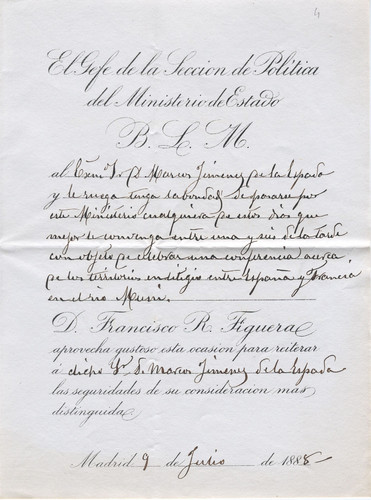 4
El Gefe de la Seccion de Política
del Ministerio de Estado
B. L. M.
al Exmo. Sr. D. Marcos Jimenez de la Espada
y le ruega tenga la bondad de pasarse por
este Ministerio cualquiera de estos dias que
mejor le convenga entre una y seis de la tarde
con objeto de celebrar una conferencia acerca
de los territorios en litigio entre España y Francia
en el rio Muni.
D. Francisco R. Figuera
aprovecha gustoso esta ocasion para reiterar
á dicho Sr. D. Marcos Jimenez de la Espada
las seguridades de su consideracion mas
distinguida.
Madrid 9 de Julio de 1888